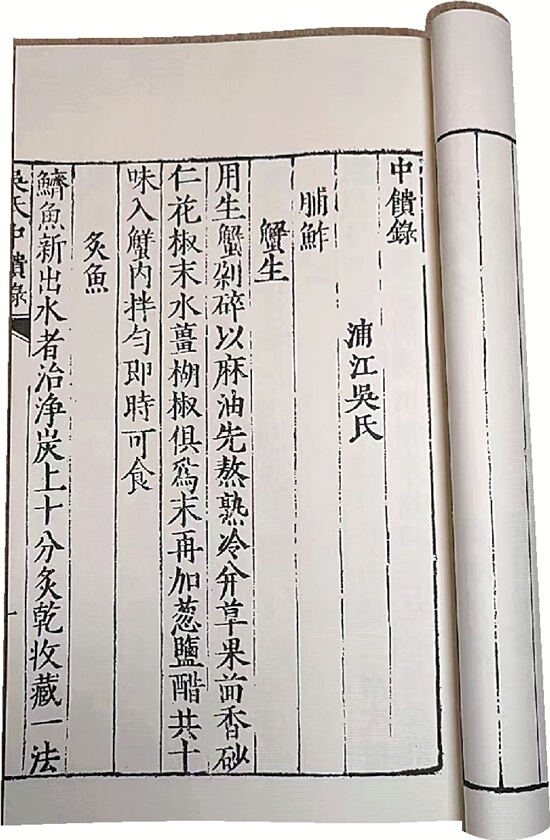 中饋錄
浦江吳氏
脯鮓
蟹生
用生蟹剁碎以麻油先熬熟冷并草果茴香砂
仁花椒末水薑楜椒俱爲末再加葱鹽醋共十
味入蟹内拌匀即時可食
炙魚
鱭魚新出水者治淨炭上十分炙乾收藏一法
吳氏中饋錄
一